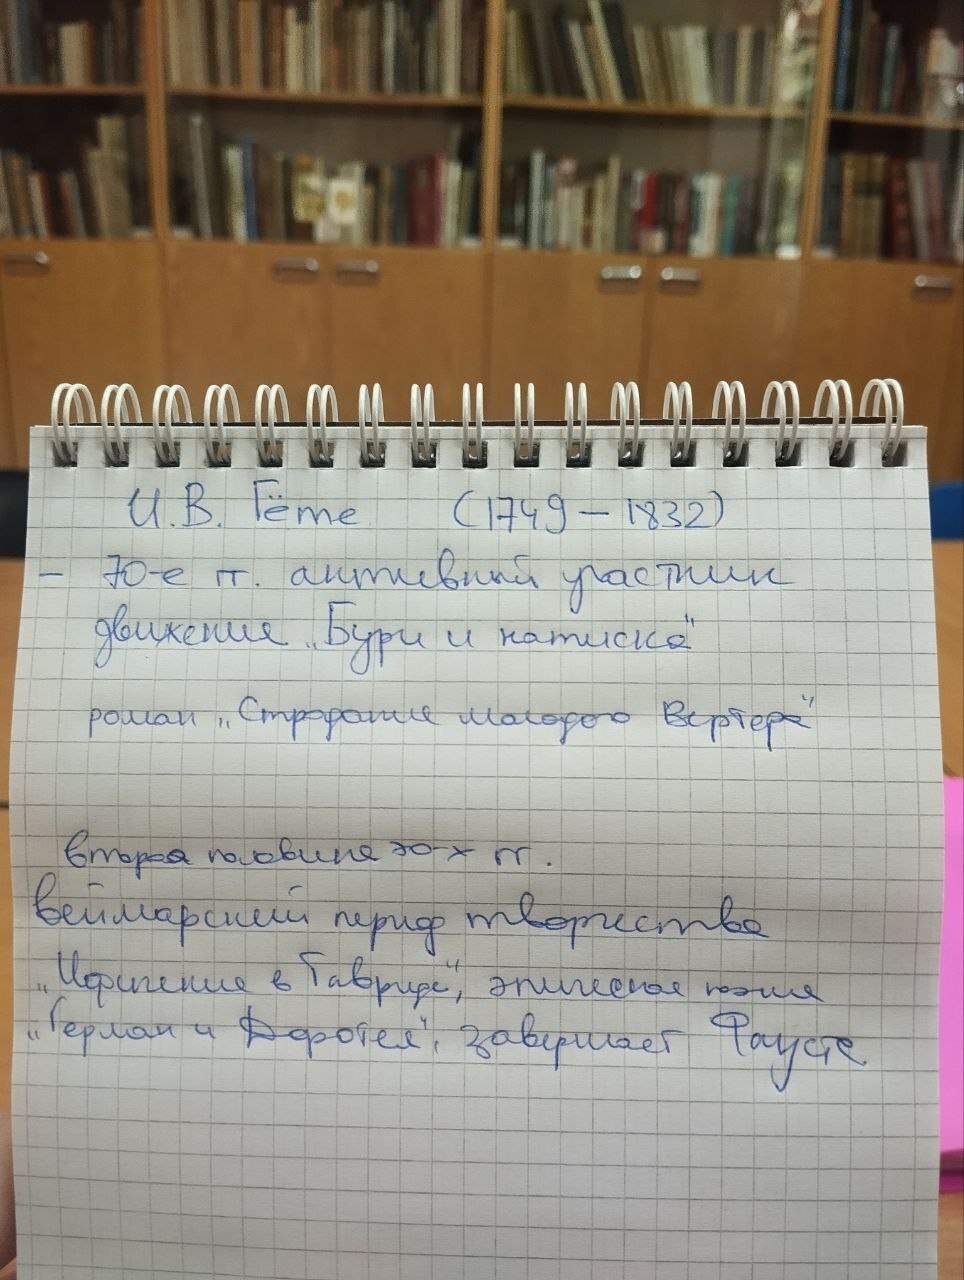 И.В. Гёте (1749 – 1832)
– 70-е гг. активный участник
движения „Бури и натиска"
роман „Страдание молодого Вертера"
вторая половина 70-х гг.
веймарский период творчества
„Ифигения в Тавриде", эпическая поэма
„Герман и Доротея", завершает Фауста